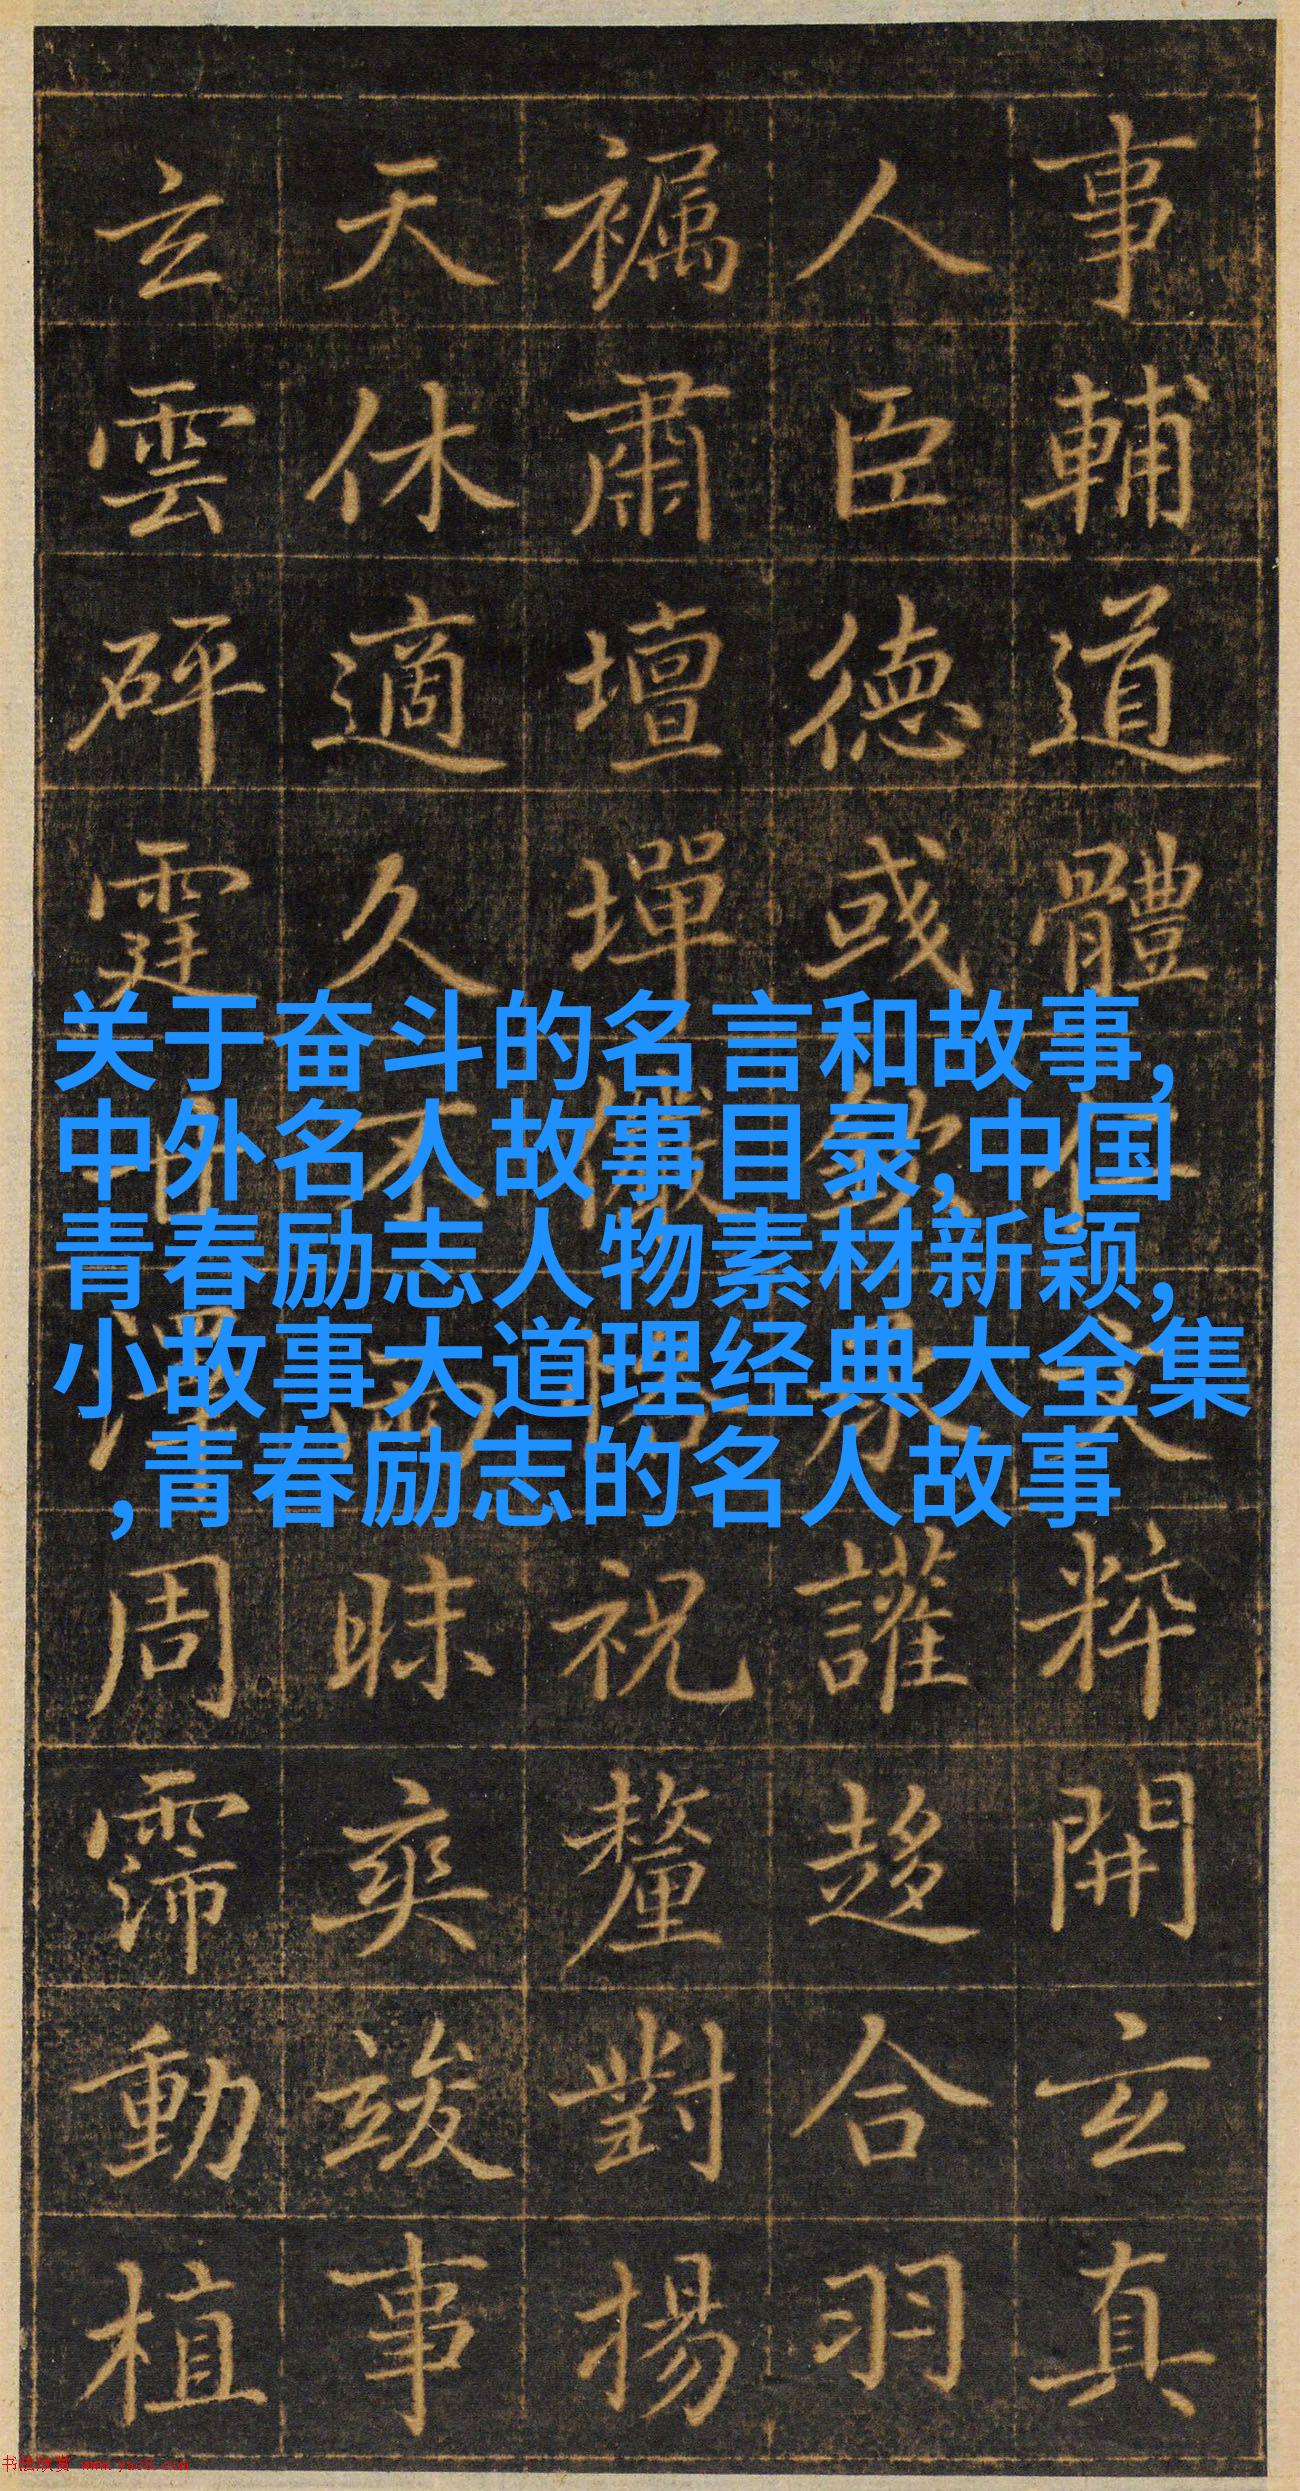 事輔道體粹開玄真
人臣德或讙趍合羽
肅壇墠祝釐對揚
天休適久不昧爽竣事
玄雲砰霆甘澤周霈動植
关于奋斗的名言和故事,
中外名人故事目录,中国
青春励志人物素材新颖,
小故事大道理经典大全集
,青春励志的名人故事
书法欣赏 www.yac8.com